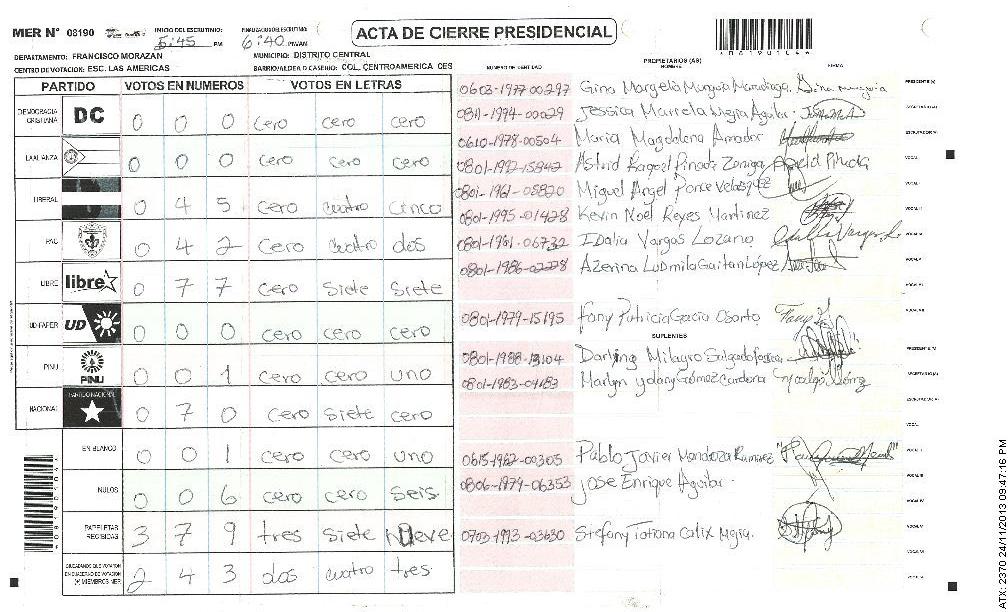 MER N° 08190 INICIO DEL ESCRUTINIO: 5:45 PM FINALIZACION ESCRUTINIO: 6:40 PM/AM
ACTA DE CIERRE PRESIDENCIAL
DEPARTAMENTO: FRANCISCO MORAZAN MUNICIPIO: DISTRITO CENTRAL
CENTRO DE VOTACION: ESC. LAS AMERICAS BARRIO/ALDEA O CASERIO: COL. CENTROAMERICA OES
PARTIDO VOTOS EN NUMEROS VOTOS EN LETRAS
DEMOCRACIA CRISTIANA DC 0 0 0 cero cero cero
LA ALIANZA 0 0 0 cero cero cero
LIBERAL 0 4 5 cero cuatro cinco
PAC 0 4 2 cero cuatro dos
LIBRE libre 0 7 7 cero siete siete
UD-FAPER UD 0 0 0 cero cero cero
PINU PINU 0 0 1 cero cero uno
NACIONAL PARTIDO NACIONAL 0 7 0 cero siete cero
EN BLANCO 0 0 1 cero cero uno
NULOS 0 0 6 cero cero seis
PAPELETAS RECIBIDAS 3 7 9 tres siete nueve
CIUDADANOS QUE VOTARON EN CUADERNO DE VOTACION (+) MIEMBROS MER 2 4 3 dos cuatro tres
NUMERO DE IDENTIDAD PROPIETARIOS (AS) NOMBRE FIRMA
0603-1977-00297 Gino Margela Murguia Mandiaga PRESIDENTE (A)
0811-1994-00029 Jessica Marcela Mejia Aguilar SECRETARIO (A)
0610-1978-00504 Maria Magdalena Amador ESCRUTADOR (A)
0801-1992-15842 Astrid Raquel Pineda Zuniga VOCAL I
0801-1961-05820 Miguel Angel Ponce Velasquez VOCAL II
0801-1995-01428 Kevin Noel Reyes Martinez VOCAL III
0801-1961-06732 Idalia Vargas Lozano VOCAL IV
0801-1986-02278 Azerina Ludmila Gaitan López VOCAL V
0801-1979-15195 Fany Patricia Gacia Osorto
SUPLENTES
0801-1988-13104 Darling Milagro Salgado PRESIDENTE (A)
0801-1983-04183 Marlyn yolany Gómez Cardona SECRETARIO (A)
ESCRUTADOR (A)
0615-1962-00305 Pablo Javier Mendoza Ramirez
0806-1979-06353 Jose Enrique Aguilar
0703-1993-03630 Stefany Tatiana Calix Mejia
ATX: 2370 24/11/2013 09:47:16 PM